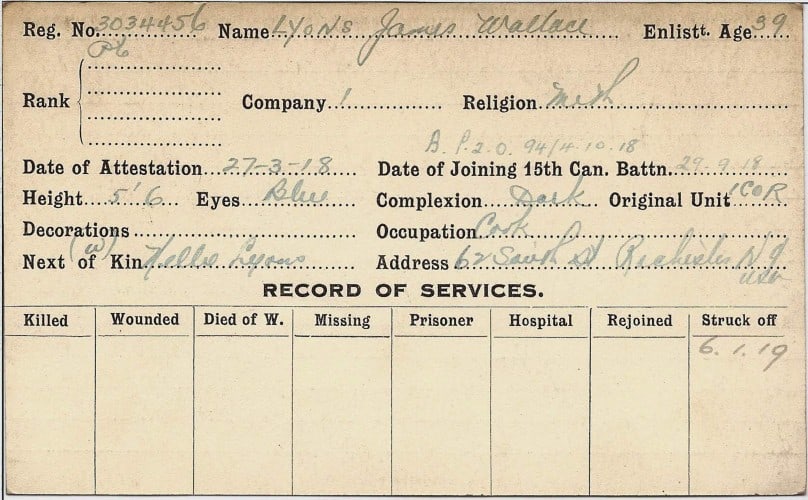 Reg. No. 3034456 Name LYONS James Wallace Enlistt. Age 39
Pte
Rank Company 1 Religion Meth
B. P.2.O. 94/4-10-18
Date of Attestation 27-3-18 Date of Joining 15th Can. Battn. 29-9-18
Height 5'6 Eyes Blue Complexion Dark Original Unit 1COR
Decorations Occupation Cook
Next of Kin (W) Nellie Lyons Address 62 South St Rochester N Y
USA
RECORD OF SERVICES.
Killed Wounded Died of W. Missing Prisoner Hospital Rejoined Struck off
6.1.19